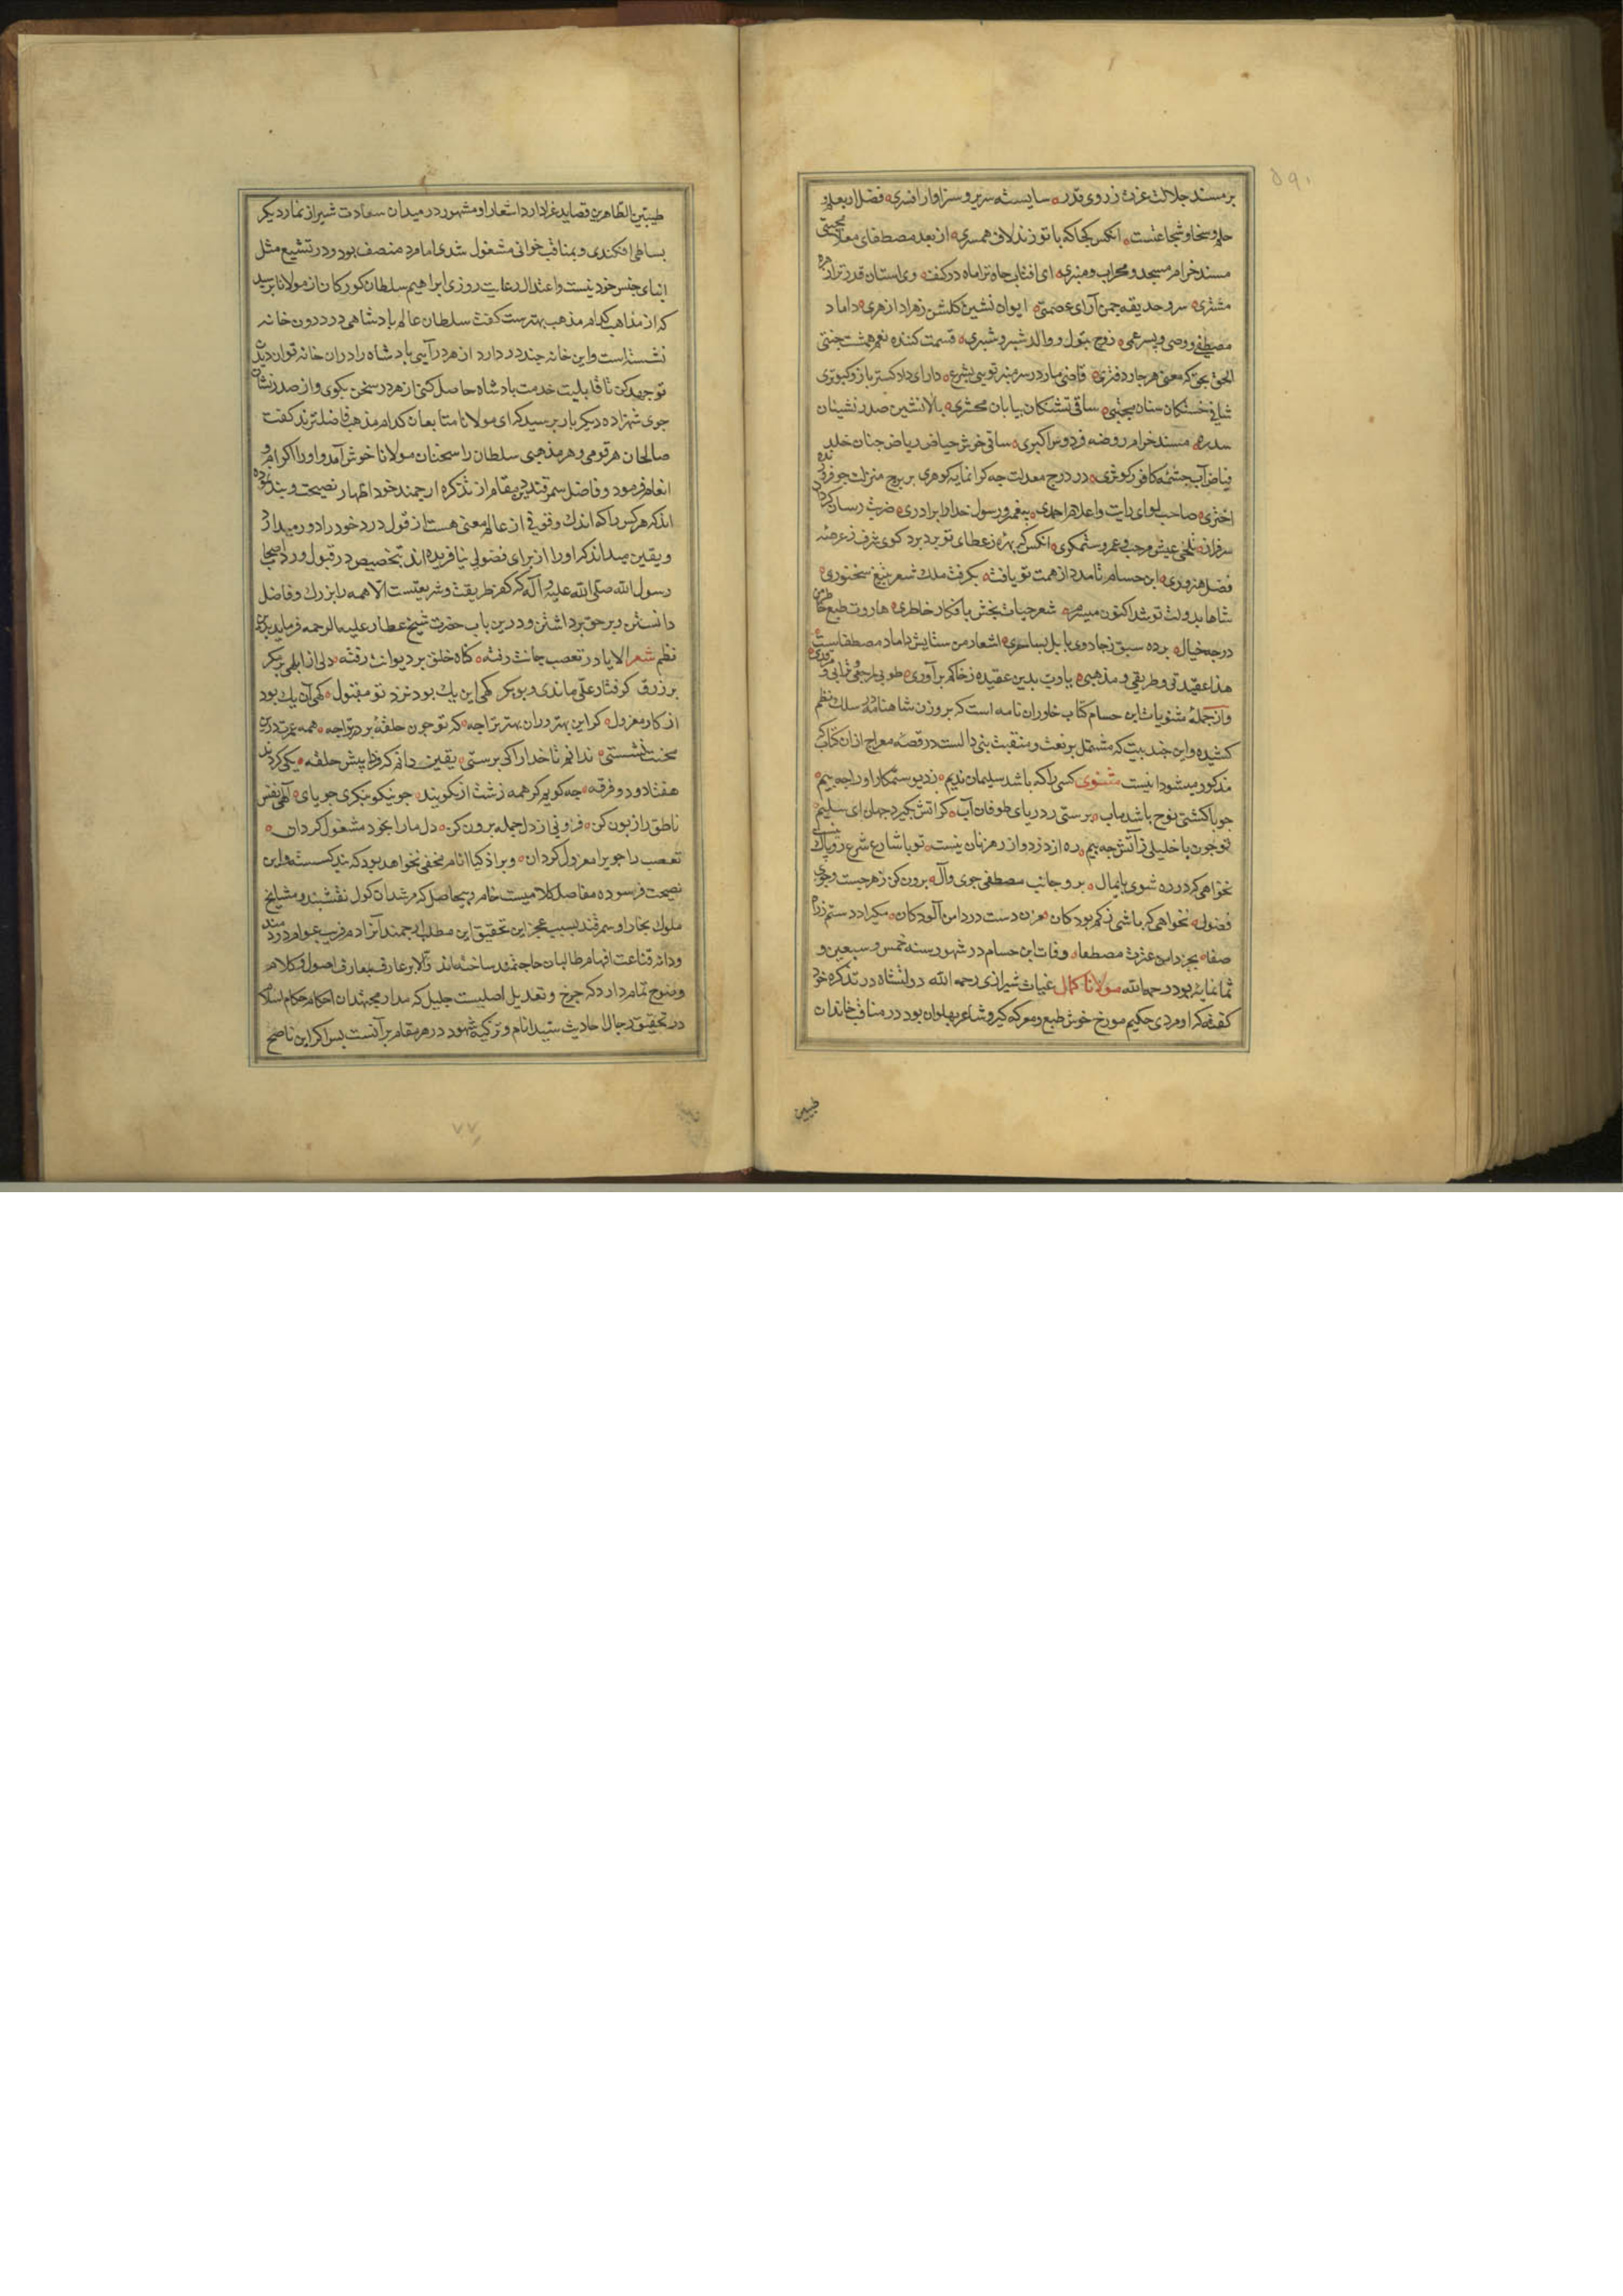 بر مسند جلالت عزت ز روی قدر سایسته سریر و سزاوار افسری فضل اربعلم و
حلم و سخا و شجاعتست انکس کجا که با تو زند لاف همسری از بعد مصطفای معلا مجتبی
مسند خرام مسجد و محراب و منبری ای افتاب جاه ترا ماه در کنف وی استان قدر ترا زهره
مشتری سرو حدیقه چمن آرای عصمتی ایوان نشین کلشن زهراء ازهری داماد
مصطفی و وصی و پسر عمی زوج بتول و والد شبیر و شبری قسمت کننده نعم هشت جنتی
الحق بحق که معنی هر چار دفتری قاضی چار در سر منبر تویی بشرع دارای داد کستر باز و کبوتری
شافی خستکان سنان مجتبی ساقی تشنکان بیابان محشری بالا نشین صدر نشینان
سدره مسند خرام روضه فردوس اکبری ساقی خوش حیاض ریاض جنان خلد
فیاض آب چشمه کافور کوثری در درج معدلت چه کرانمایه کوهری بر برج منزلت چو فروزنده
اختری صاحب لوای رایت و اعلام احمدی پیغمبر و رسول خدا را برادری
سرفراز انکس که بهره ز عطای تو برد برد کوی شرف ز عرصه
فضل هنروری ابن حسام تا مدد از همت تو یافت بکرفت ملک شعر بتیغ سخنوری
شاها بدولت تو شد اکنون میسرم شعر حیات بخش بافکار خاطری هاروت طبع خاطر من
در چه خیال برده سبق ز جادوی بابل بساحری اشعار من ستایش داماد مصطفاست
هذا عقیدتی و طریقی و مذهبی یا رب بدین عقیده ز خاکم بر آوری
و از جمله مثنویات ابن حسام کتاب خاوران نامه است که بر وزن شاهنامه در سلک نظم
کشیده و این چند بیت که مشتمل بر نعت و منقبت بنی دالست در قصه معراج از ان کتاب که
مذکور میشود اینست مثنوی کسی را که باشد سلیمان ندیم ز دیو ستمکار او را چه بیم
چو با کشتی نوح باشد ماب برستی ز دریای طوفان آب کر اتش بکیرد جهان ای سلیم
تو چون با خلیلی ز آتش چه بیم ره از دزد و از رهزنان نیست تو با شارع شرع رو پاک
نخواهی که در ره شوی پایمال برو جانب مصطفی جوی و آل برون کن ز هر چیست وجوی
فضول نخواهی که باشی ز کم بودکان مزن دست در دامن آلودکان مکیرا در ستم
صفا بجز دامن عترت مصطفا وفات ابن حسام در شهور سنه خمس و سبعین و
ثمانمایه بود رحمه الله مولانا کمال غیاث شیرازی رحمه الله دولتشاه در تذکره خود
کفته که او مردی حکیم مورخ خوش طبع و معرکه کیر و شاعر پهلوان بود در مناقب خاندان
طیبین
طیبین الطاهرین قصاید غرا دارد اشعار او مشهور در میدان سعادت شیراز نماز دیکر
بساطی افکندی و بمناقب خوانی مشغول شدی اما مرد منصف بود و در تشیع مثل
ابنای جنس خود نیست و اعتدال رعایت روزی ابراهیم سلطان کورکان از مولانا پرسید
که از مذاهب کدام مذهب بهترست کفت سلطان عالم پادشاهی در درون خانه
نشسته است و این خانه چند در دارد از هر در آیی پادشاه را در ان خانه توان دیدن
تو جهد کن تا قابلیت خدمت پادشاه حاصل کنی از هر در سخن مکوی و از صدر نشان
جوی شهزاده دیکر بار پرسید که ای مولانا متابعان کدام مذهب فاضلترند کفت
صالحان هر قومی و هر مذهبی سلطان را سخنان مولانا خوش آمد و او را اکرام و
انعام فرمود و فاضل سمرقند درین مقام از تذکره ارجمند خود اظهار نصیحت و پند کرده
انکه هر کس را که اندک وقوفی از عالم معنی هست از قول درد خود را دور میدارد
و یقین میداند که او را از برای فضولی نیافریده اند بتخصیص در قبول و رد اصحاب
رسول الله صلی الله علیه و آله که کفر طریقت و شریعتست الا همه را بزرک و فاضل
دانستن و بر حق پرداشتن و درین باب حضرت شیخ عطار علیه الرحمه فرماید
نظم شعر الا یا در تعصب جانت رفته کناه خلق بر دیوانت رفته دلی از ابلهی پر مکر
پر زرق کرفتار علی ماندی و بوبکر کهی این یک بود نزد تو مقبول کهی آن یک بود
از کار معزول کر این بهتر ور ان بهتر ترا چه که تو چون حلقه بر در ترا چه همه عمرت درین
محنت نشستی ندانم تا خدا را کی پرستی یقین دانم که فردا پیش حلقه یکی کردند
هفتاد و دو فرقه چه کویم کر همه زشت ار نکویند چو نیکو بنکری جویای
ناطق را زبون کن فزونی از دل جمله برون کن دل ما را بخود مشغول کردان
تعصب را جوی را معزول کردان و بر اذکیا انام مخفی نخواهد بود که بند کسسته و این
نصیحت فرسوده مفاصل کلامیست خام و بیحاصل که مرشدان کول نقشبند و مشایخ
ملوک بخارا و سمرقند بسبب عجز این تحقیق این مطلب ارجمند انرا دم فریب عوام دردمند
و دانه قناعت افهام طالبان حاجتمند ساخته اند والا بر عارف بمعارف اصول و کلام
وضوح تمام دارد که جرح و تعدیل اصلیست جلیل که مدار مجتهدان احکام حکام اسلام
در تحقیق رجال احادیث سید انام و تزکیه شهود در هر مقام بر آنست پس اکر این ناصح